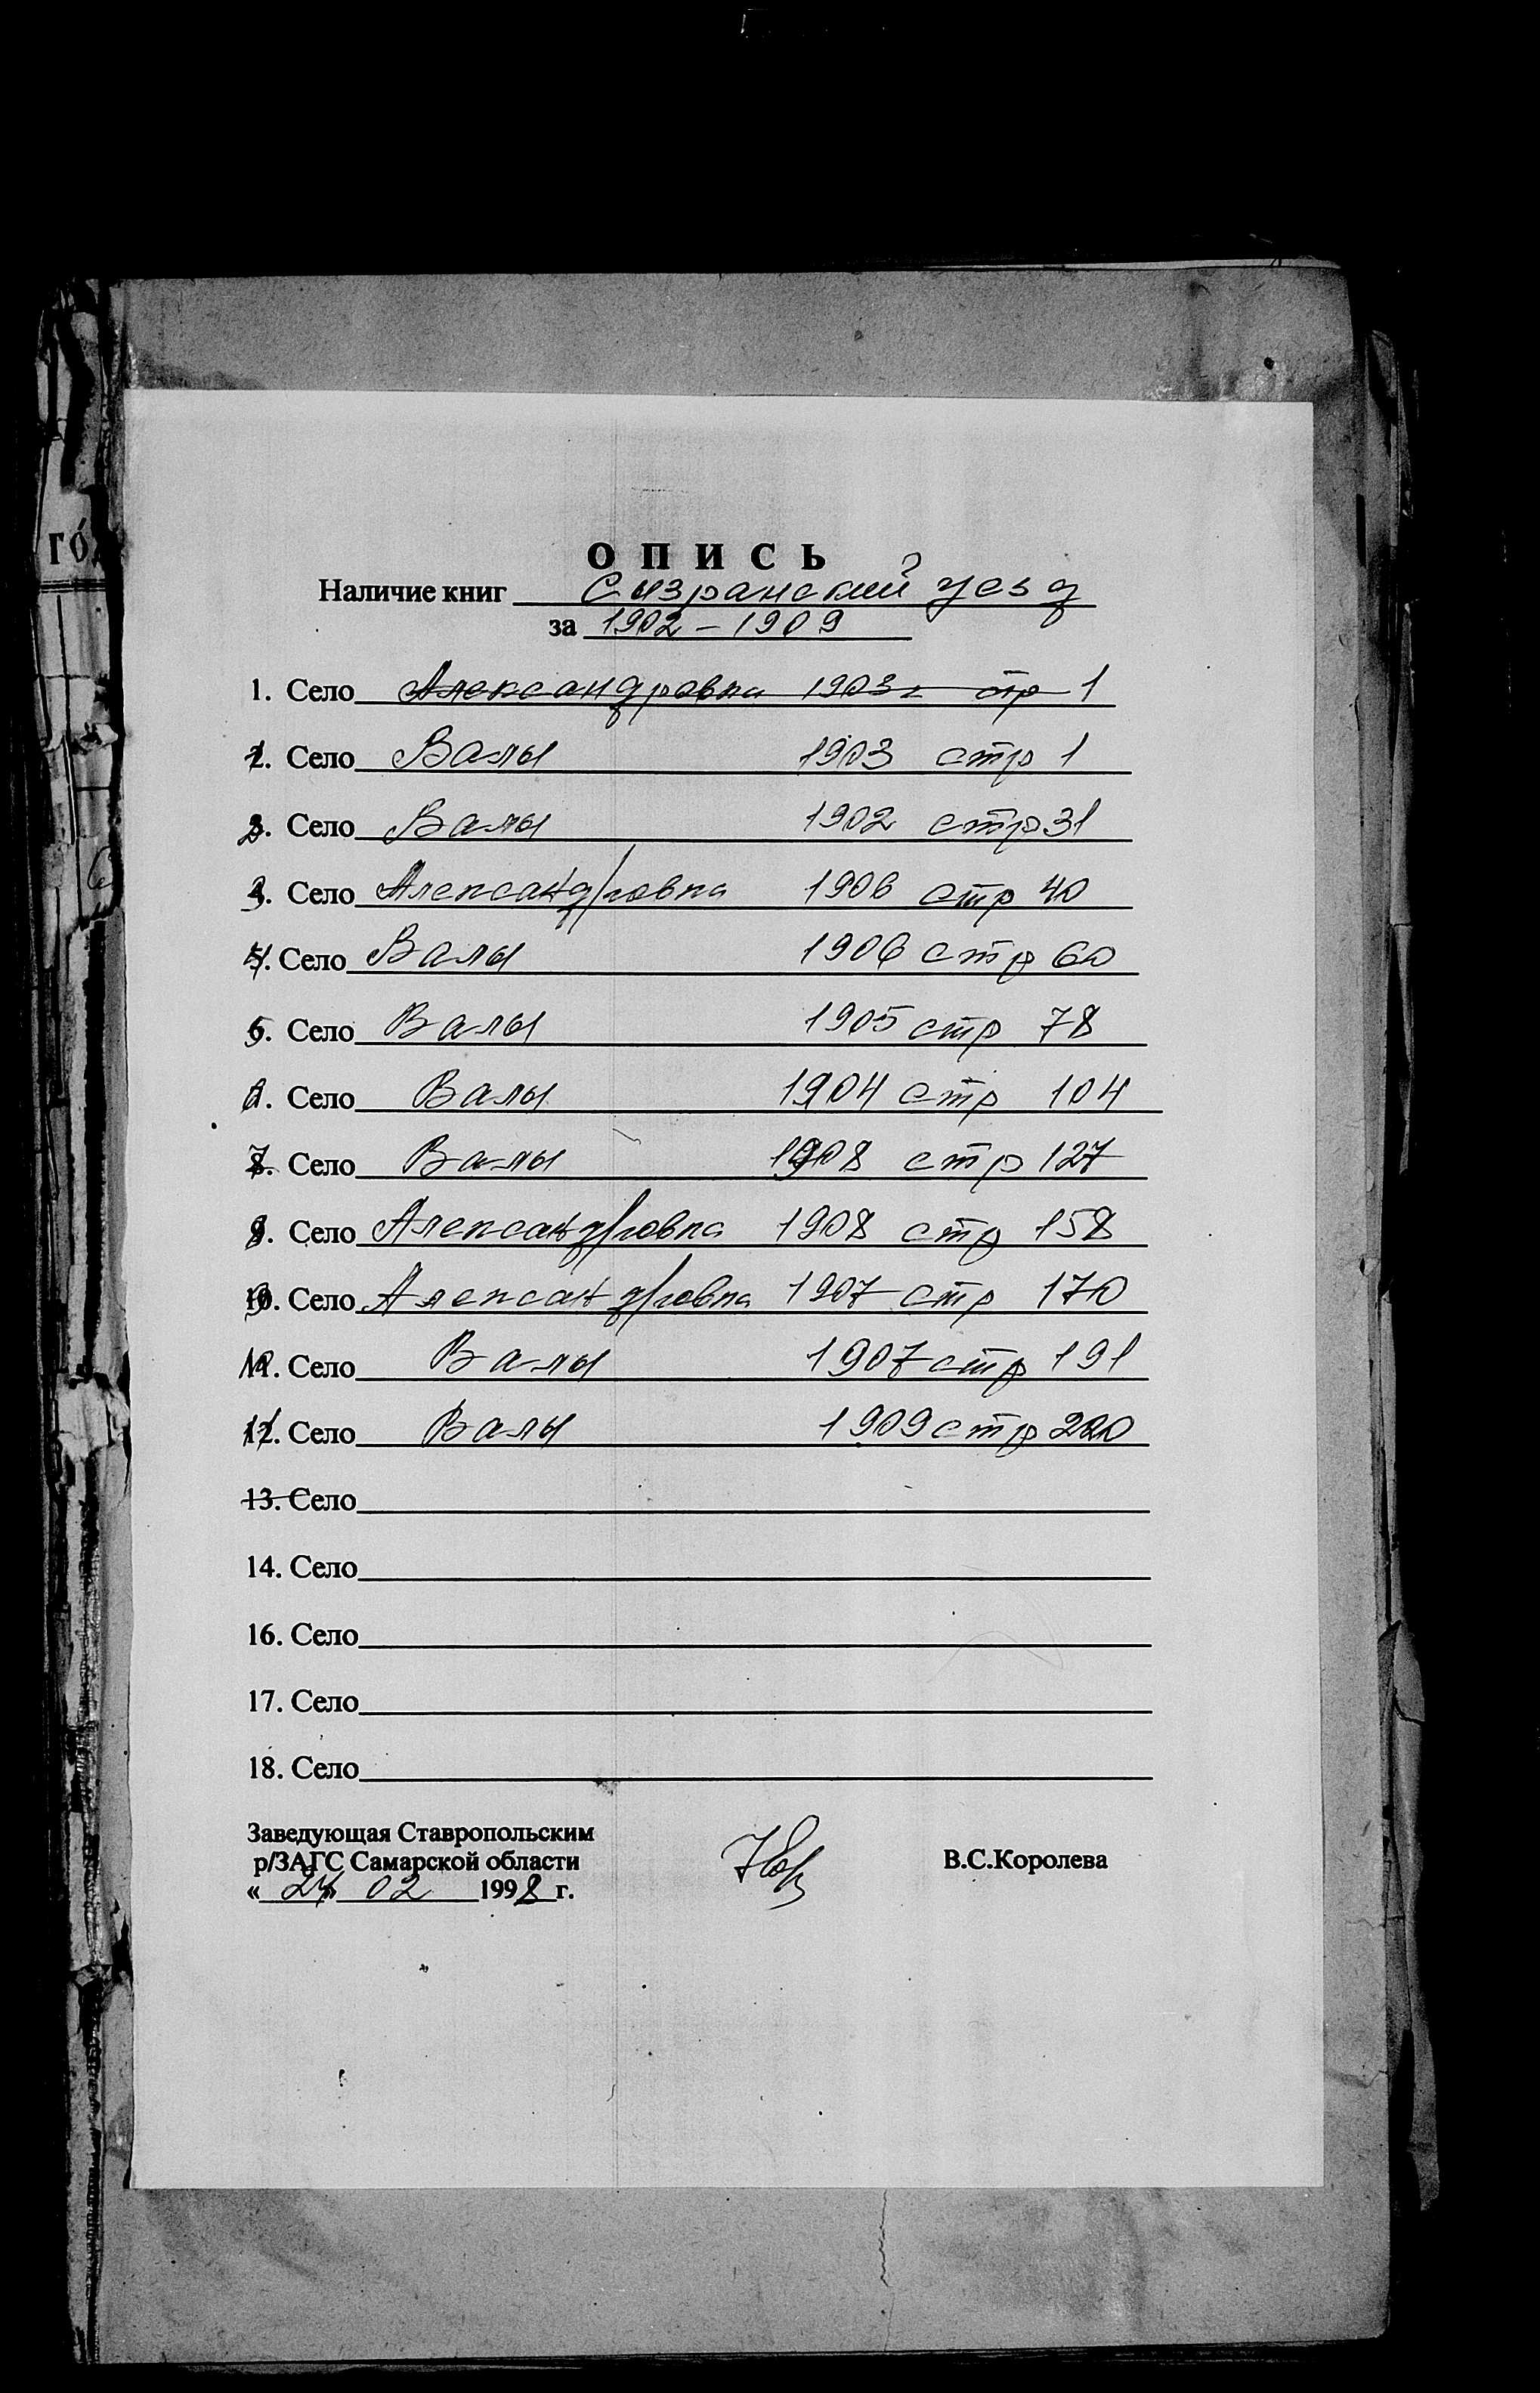 ГО
ОПИСЬ
Наличие книг Сызранский уезд
за 1902 – 1909
1. Село Александровка 1903 г стр 1
1. Село Валы 1903 стр 1
2. Село Валы 1902 стр 31
3. Село Александровка 1906 стр 40
4. Село Валы 1906 стр 60
5. Село Валы 1905 стр 78
6. Село Валы 1904 стр 104
7. Село Валы 1908 стр 127
8. Село Александровка 1908 стр 158
9. Село Александровка 1907 стр 170
10. Село Валы 1907 стр 191
11. Село Валы 1909 стр 220
13. Село
14. Село
16. Село
17. Село
18. Село
Заведующая Ставропольским
р/ЗАГС Самарской области В.С.Королева
« 24 » 02 1998 г.